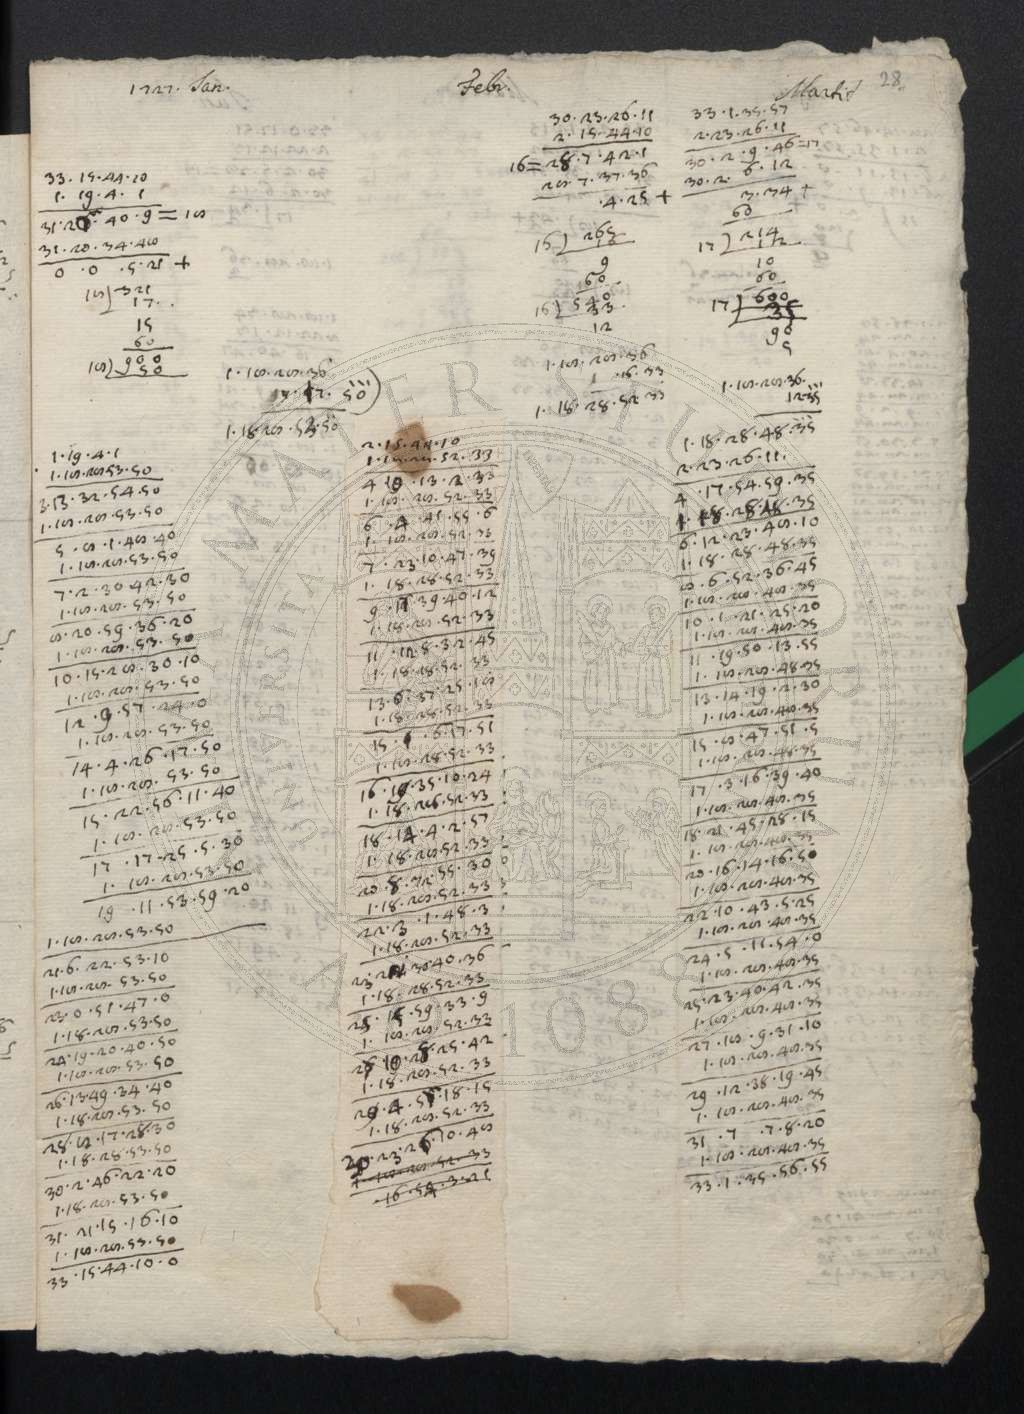 28
1727. Jan.
33.15.44.10
1.19.4.1
31.20.40.9=18
31.20.34.48
0.0.5.21 +
18) 321
17
15
60
18) 900
50
1.18.28.36
17.50
1.18.28.53.50
1.19.4.1
1.18.28.53.50
3.13.32.54.50
1.18.28.53.50
5.8.1.48.40
1.18.28.53.50
7.2.30.42.30
1.18.28.53.50
8.20.59.36.20
1.18.28.53.50
10.15.28.30.10
1.18.28.53.50
12.9.57.24.0
1.18.28.53.50
14.4.26.17.50
1.18.28.53.50
15.22.56.11.40
1.18.28.53.50
17.17.25.5.30
1.18.28.53.50
19.11.53.59.20
1.18.28.53.50
21.6.22.53.10
1.18.28.53.50
23.0.51.47.0
1.18.28.53.50
24.19.20.40.50
1.18.28.53.50
26.13.49.34.40
1.18.28.53.50
28.8.17.28.30
1.18.28.53.50
30.2.46.22.20
1.18.28.53.50
31.21.15.16.10
1.18.28.53.50
33.15.44.10.0
Febr.
30.23.26.11
2.15.44.10
16=28.7.42.1
28.7.37.36
.4.25 +
16) 265
9
60
16) 540
33
12
1.18.28.36
1.16.33
1.18.28.52.33
2.15.44.10
1.18.28.52.33
4.10.13.2.33
1.18.28.52.33
6.4.41.55.6
1.18.28.52.33
7.23.10.47.39
1.18.28.52.33
9.17.39.40.12
1.18.28.52.33
11.12.8.32.45
1.18.28.52.33
13.6.37.25.18
1.18.28.52.33
15.1.6.17.51
1.18.28.52.33
16.19.35.10.24
1.18.28.52.33
18.14.4.2.57
1.18.28.52.33
20.8.32.55.30
1.18.28.52.33
22.3.1.48.3
1.18.28.52.33
23.21.30.40.36
1.18.28.52.33
25.15.59.33.9
1.18.28.52.33
27.10.28.25.42
1.18.28.52.33
29.4.57.18.15
1.18.28.52.33
30.23.26.10.48
1.18.28.52.33
16.54.3.21
Martis
33.1.35.57
2.23.26.11
30.2.9.46=17
30.2.6.12
3.34 +
60
17) 214
12
10
60
17) 600
35
90
5
1.18.28.36.
12.35
1.18.28.48.35
2.23.26.11.
4.17.54.59.35
1.18.28.48.35
6.12.23.48.10
1.18.28.48.35
8.6.52.36.45
1.18.28.48.35
10.1.21.25.20
1.18.28.48.35
11.19.50.13.55
1.18.28.48.35
13.14.19.2.30
1.18.28.48.35
15.8.47.51.5
1.18.28.48.35
17.3.16.39.40
1.18.28.48.35
18.21.45.28.15
1.18.28.48.35
20.16.14.16.50
1.18.28.48.35
22.10.43.5.25
1.18.28.48.35
24.5.11.54.0
1.18.28.48.35
25.23.40.42.35
1.18.28.48.35
27.18.9.31.10
1.18.28.48.35
29.12.38.19.45
1.18.28.48.35
31.7.7.8.20
1.18.28.48.35
33.1.35.56.55
ALMA MATER STUDIORUM
UNIVERSITA DI
A.D. 1088